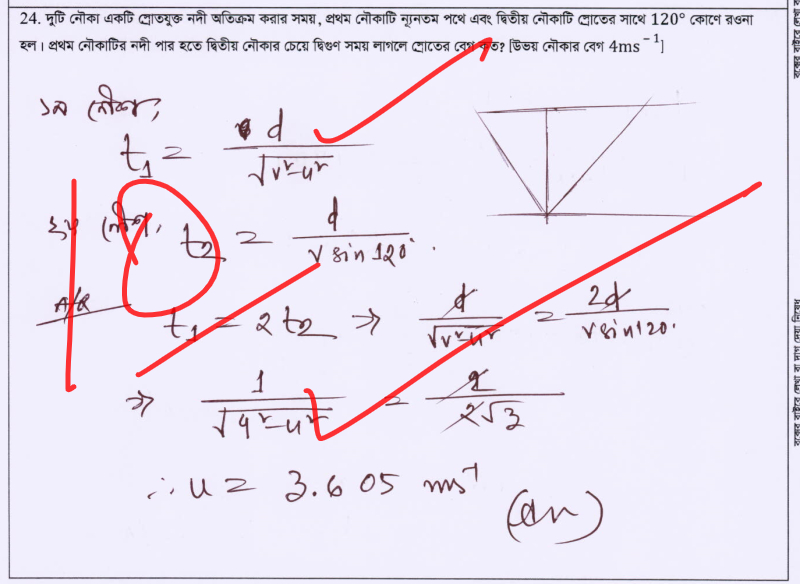 24. দুটি নৌকা একটি স্রোতযুক্ত নদী অতিক্রম করার সময়, প্রথম নৌকাটি ন্যূনতম পথে এবং দ্বিতীয় নৌকাটি স্রোতের সাথে 120° কোণে রওনা
হল। প্রথম নৌকাটির নদী পার হতে দ্বিতীয় নৌকার চেয়ে দ্বিগুণ সময় লাগলে স্রোতের বেগ কত? [উভয় নৌকার বেগ 4ms⁻¹]
১ম নৌকা,
t₁ = d / √(v²-u²)
২য় নৌকা, t₂ = d / v sin 120°.
A/Q
t₁ = 2 t₂ ⇒ d / √(v²-u²) = 2d / v sin 120°
⇒ 1 / √(4²-u²) = 2 / 2√3
∴ u = 3.605 ms⁻¹
(An)